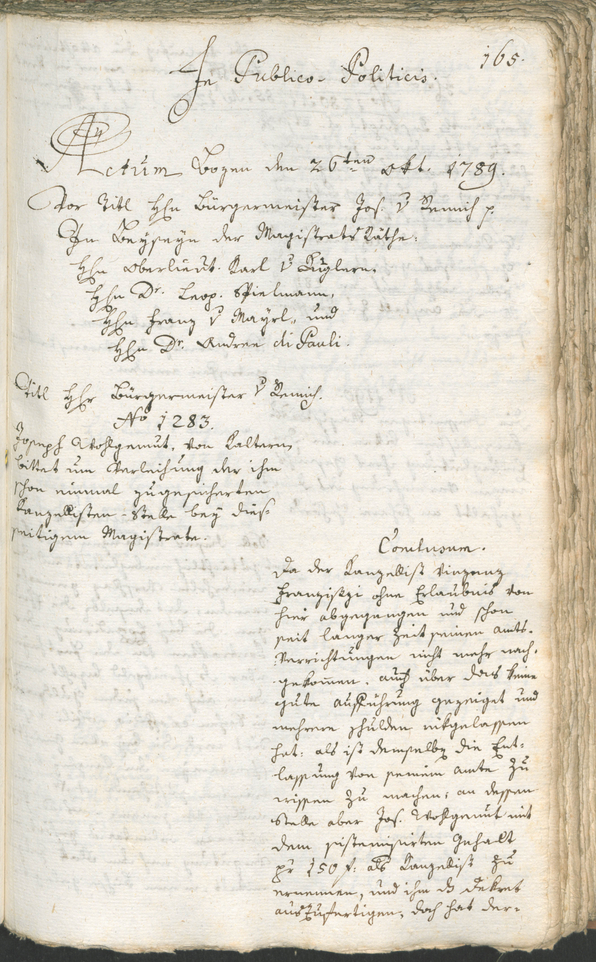 165.
In Publico-Politicis.
Actum Bozen den 26ten Okt. 1789.
Vor Titl Hhn Bürgermeister Jos. v Remich p.
In Beyseyn der Magistrats Räthe:
Hhn Oberlieut. Karl v Zigler.
Hhn Dr. Leop. Spielmann,
Hhn Franz v Mayrl, und
Hhn Dr. Andree di Pauli.
Titl Hhr Bürgermeister v Remich.
No 1283.
Joseph Wohlgemut, von Kaltern
bittet um Verleihung der ihm
schon einmal zugesicherten
Kanzellisten-Stelle bey dies
seitigem Magistrate.
Conclusum.
Da der Kanzellist Vinzenz
Franziszi ohne Erlaubnis von
hier abgegangen und schon
seit langer Zeit seinen Amts-
Verrichtungen nicht mehr nach-
gekommen, auch über das keine
gute Aufführung gezeiget und
mehrere Schulden rükgelassen
hat: als ist demselben die Ent-
lassung von seinem Amte zu
wissen zu machen; an dessen
Stelle aber Jos. Wohlgemut mit
dem sistemisirten Gehalt
pr 150 f: als Kanzellist zu
ernennen, und ihm ds Dekret
auszufertigen, doch hat der-